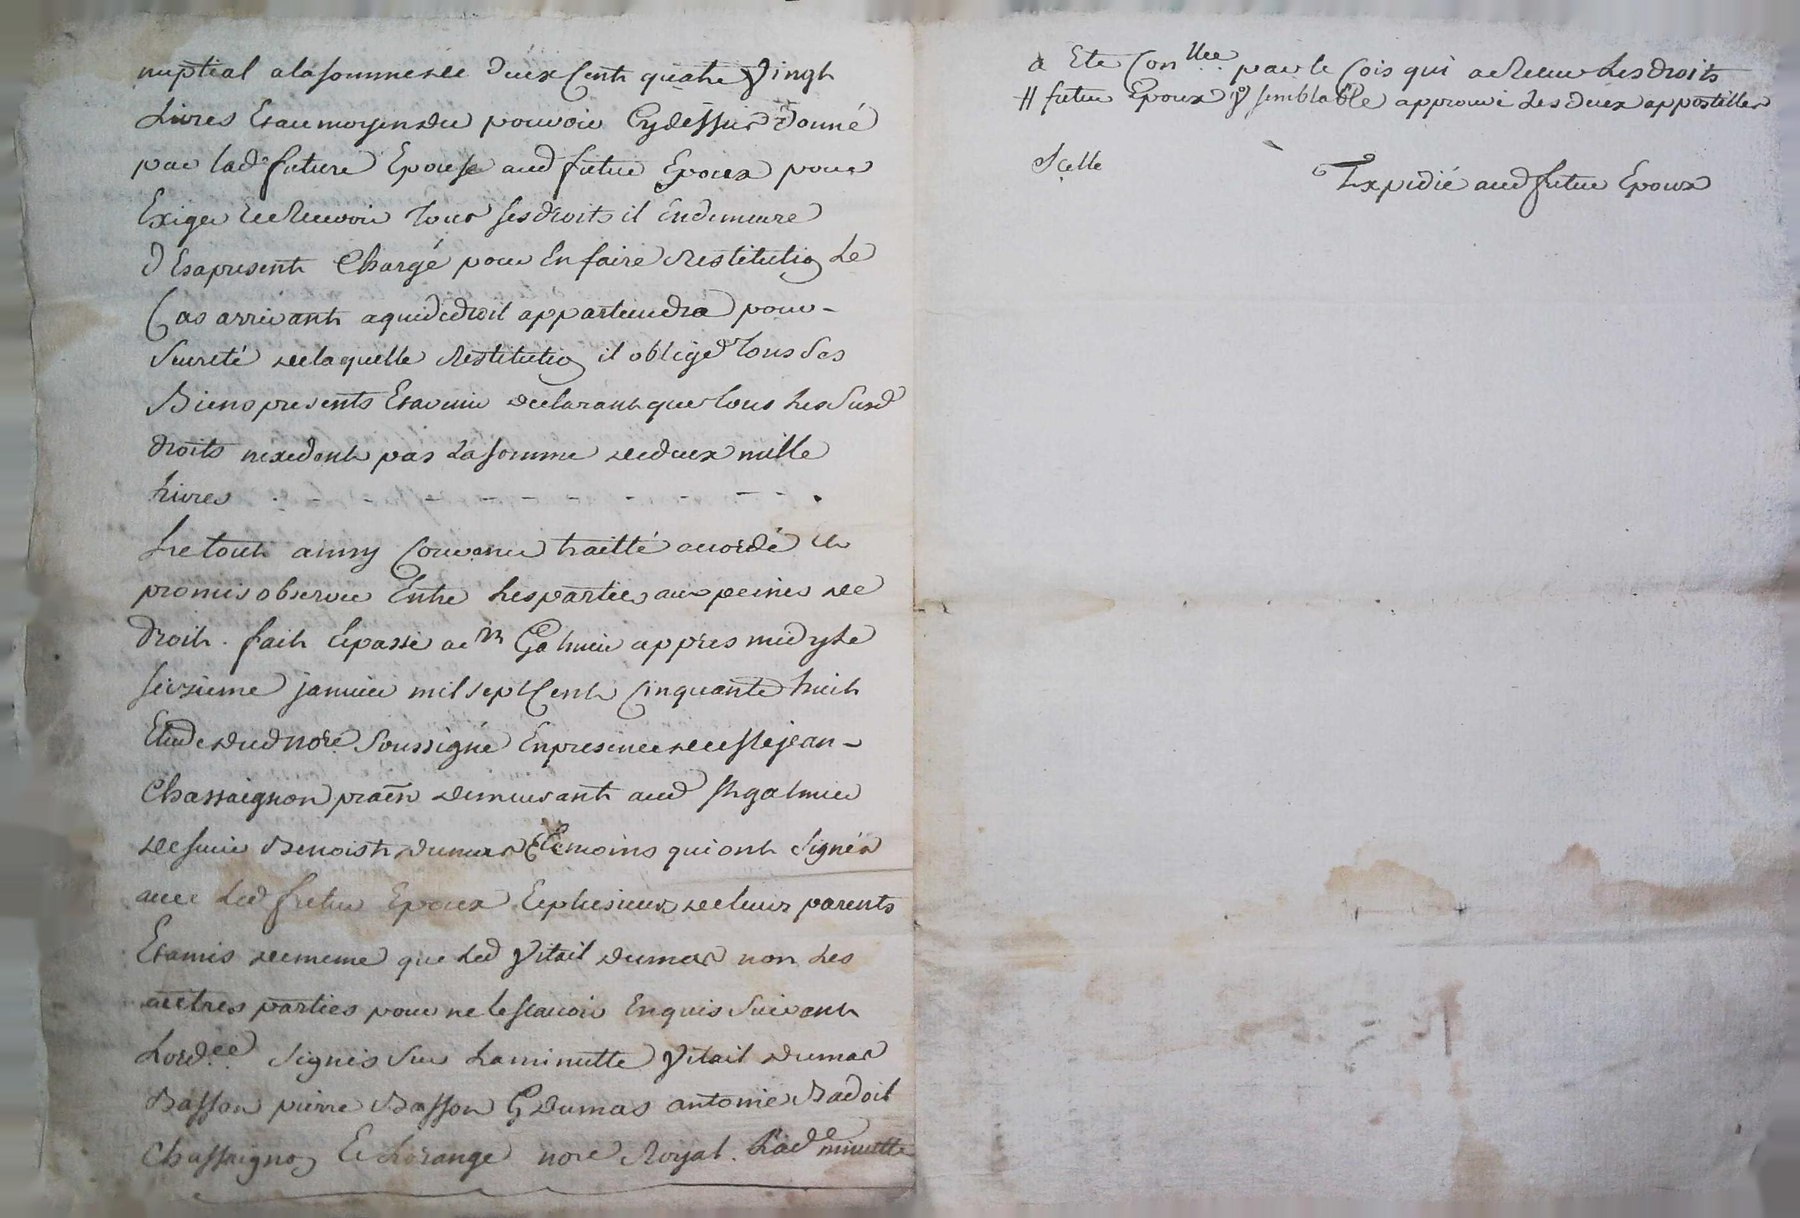 nuptial alasomme de deux Cents quatre Vingt
Livres Et au moyen du pouvoir Cydessus donné
par lad future Epouse aud futur Epoux pour
Exiger et Recevoir tous ses droits il En demeure
des apresent Chargé pour En faire Restitution Le
Cas arrivant a qui de droit appartiendra pour
sureté de laquelle Restitution il oblige tous ses
Biens presents Et avenir declarant que tous les susd
droits nexedent pas La somme de deux mille
Livres - - - - - - - - .
Le tout ainsy Convenu traitté accordé et
promis observer Entre Les parties aux peines de
droit. fait Et passé a St Galmier appres midy Le
seizieme janvier mil sept Cent Cinquante huit
Etude dud nore soussigné En presence de jean
Chassaignon praēn demeurant aud St galmier
de sieur Benoist dumas temoins qui ont signés
avec Led futur Epoux Et plusieurs de leurs parents
Et amis de meme que Led Vitail dumas non Les
autres parties pour ne le scavoir Enquis suivant
Lordee signés sur La minutte Vitail dumas
Basson pierre Basson G dumas antoine Badoil
Chassaignon Et Lorange nore Royal. Lad minutte
a Ete Conllee par le Cois qui a Receu Les droits
# futur Epoux & semblable approuvé Les deux appostilles
Scelle
Expedié aud futur Epoux